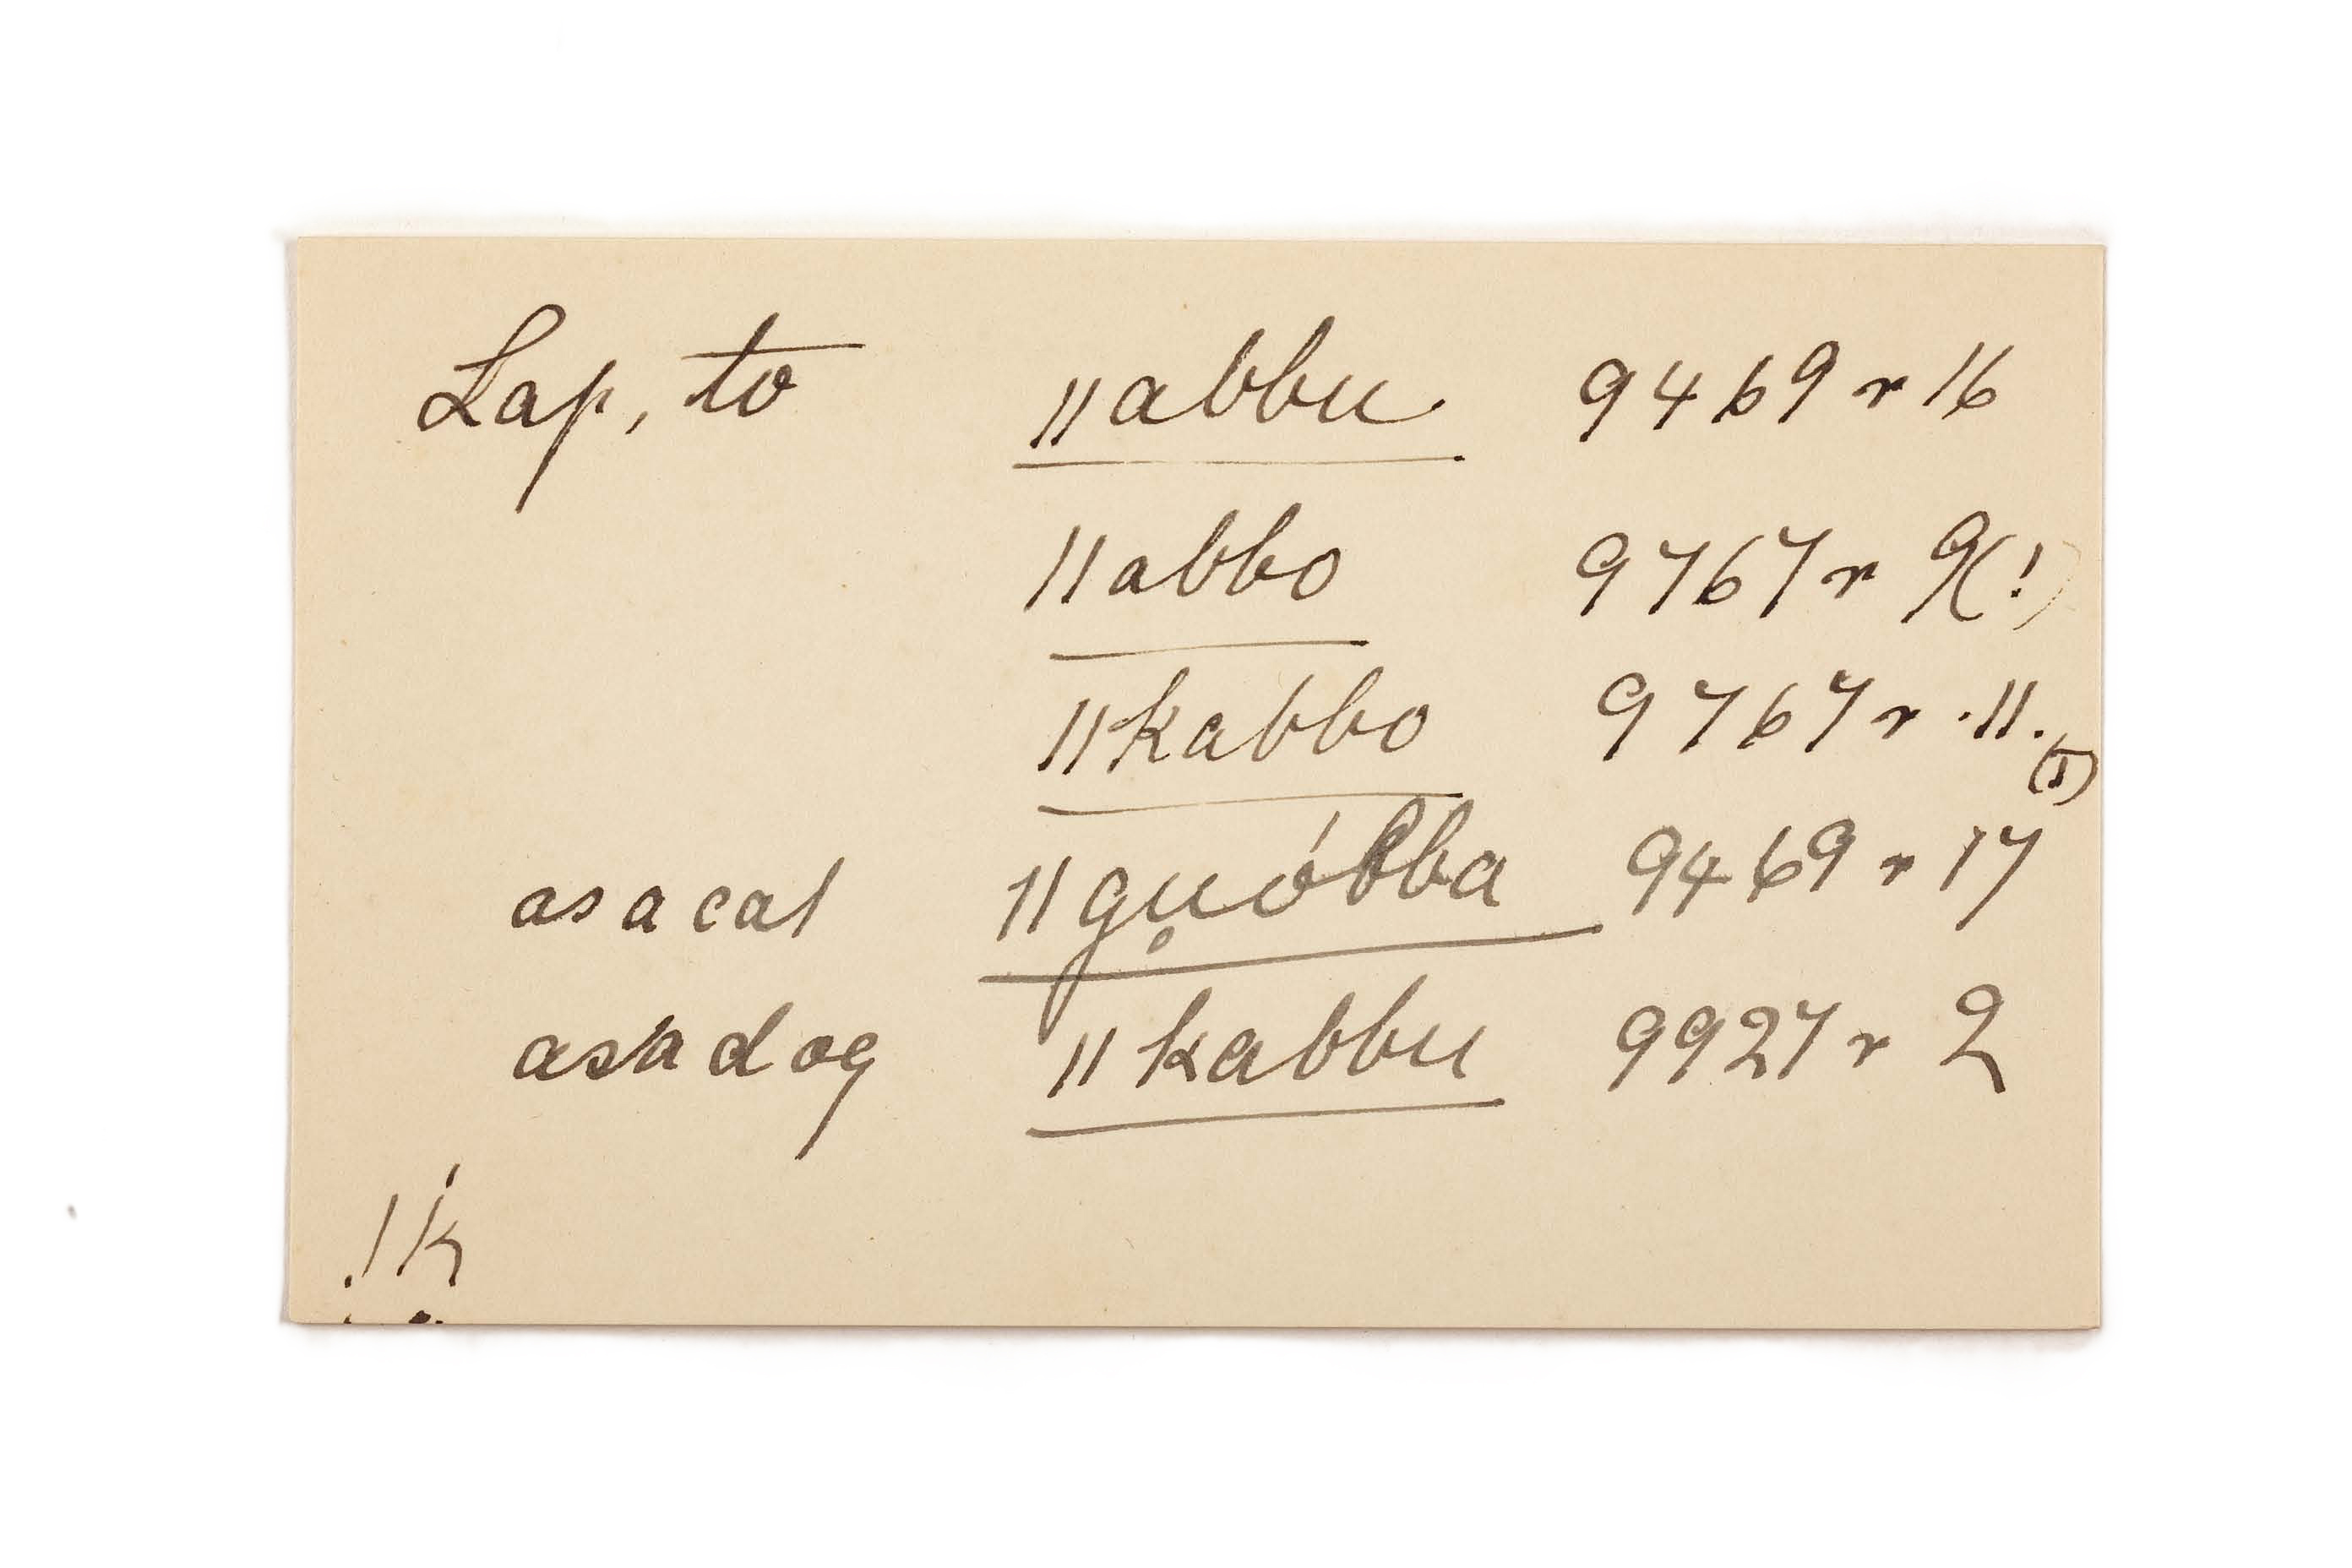 Lap, to ǁabbu 9469 r 16
ǁabbo 9767 r 9(!)
ǁkabbo 9767 r .11.
as a cat ǁgu̥óbba 9469 r 17
as a dog ǁkabbu 9927 r 2